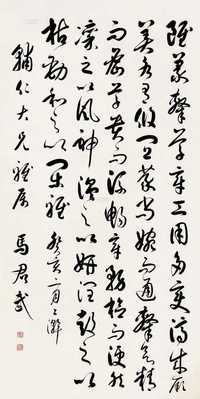 雖篆隸草章工用多變濟成厥
美各有攸宜篆尚婉而通隸欲精
而密草貴而流暢章務檢而便然
凜之以風神溫之以妍潤鼓之以
枯勁和之以閑雅 癸亥二月上澣
輔仁大兄雅屬 馬君武